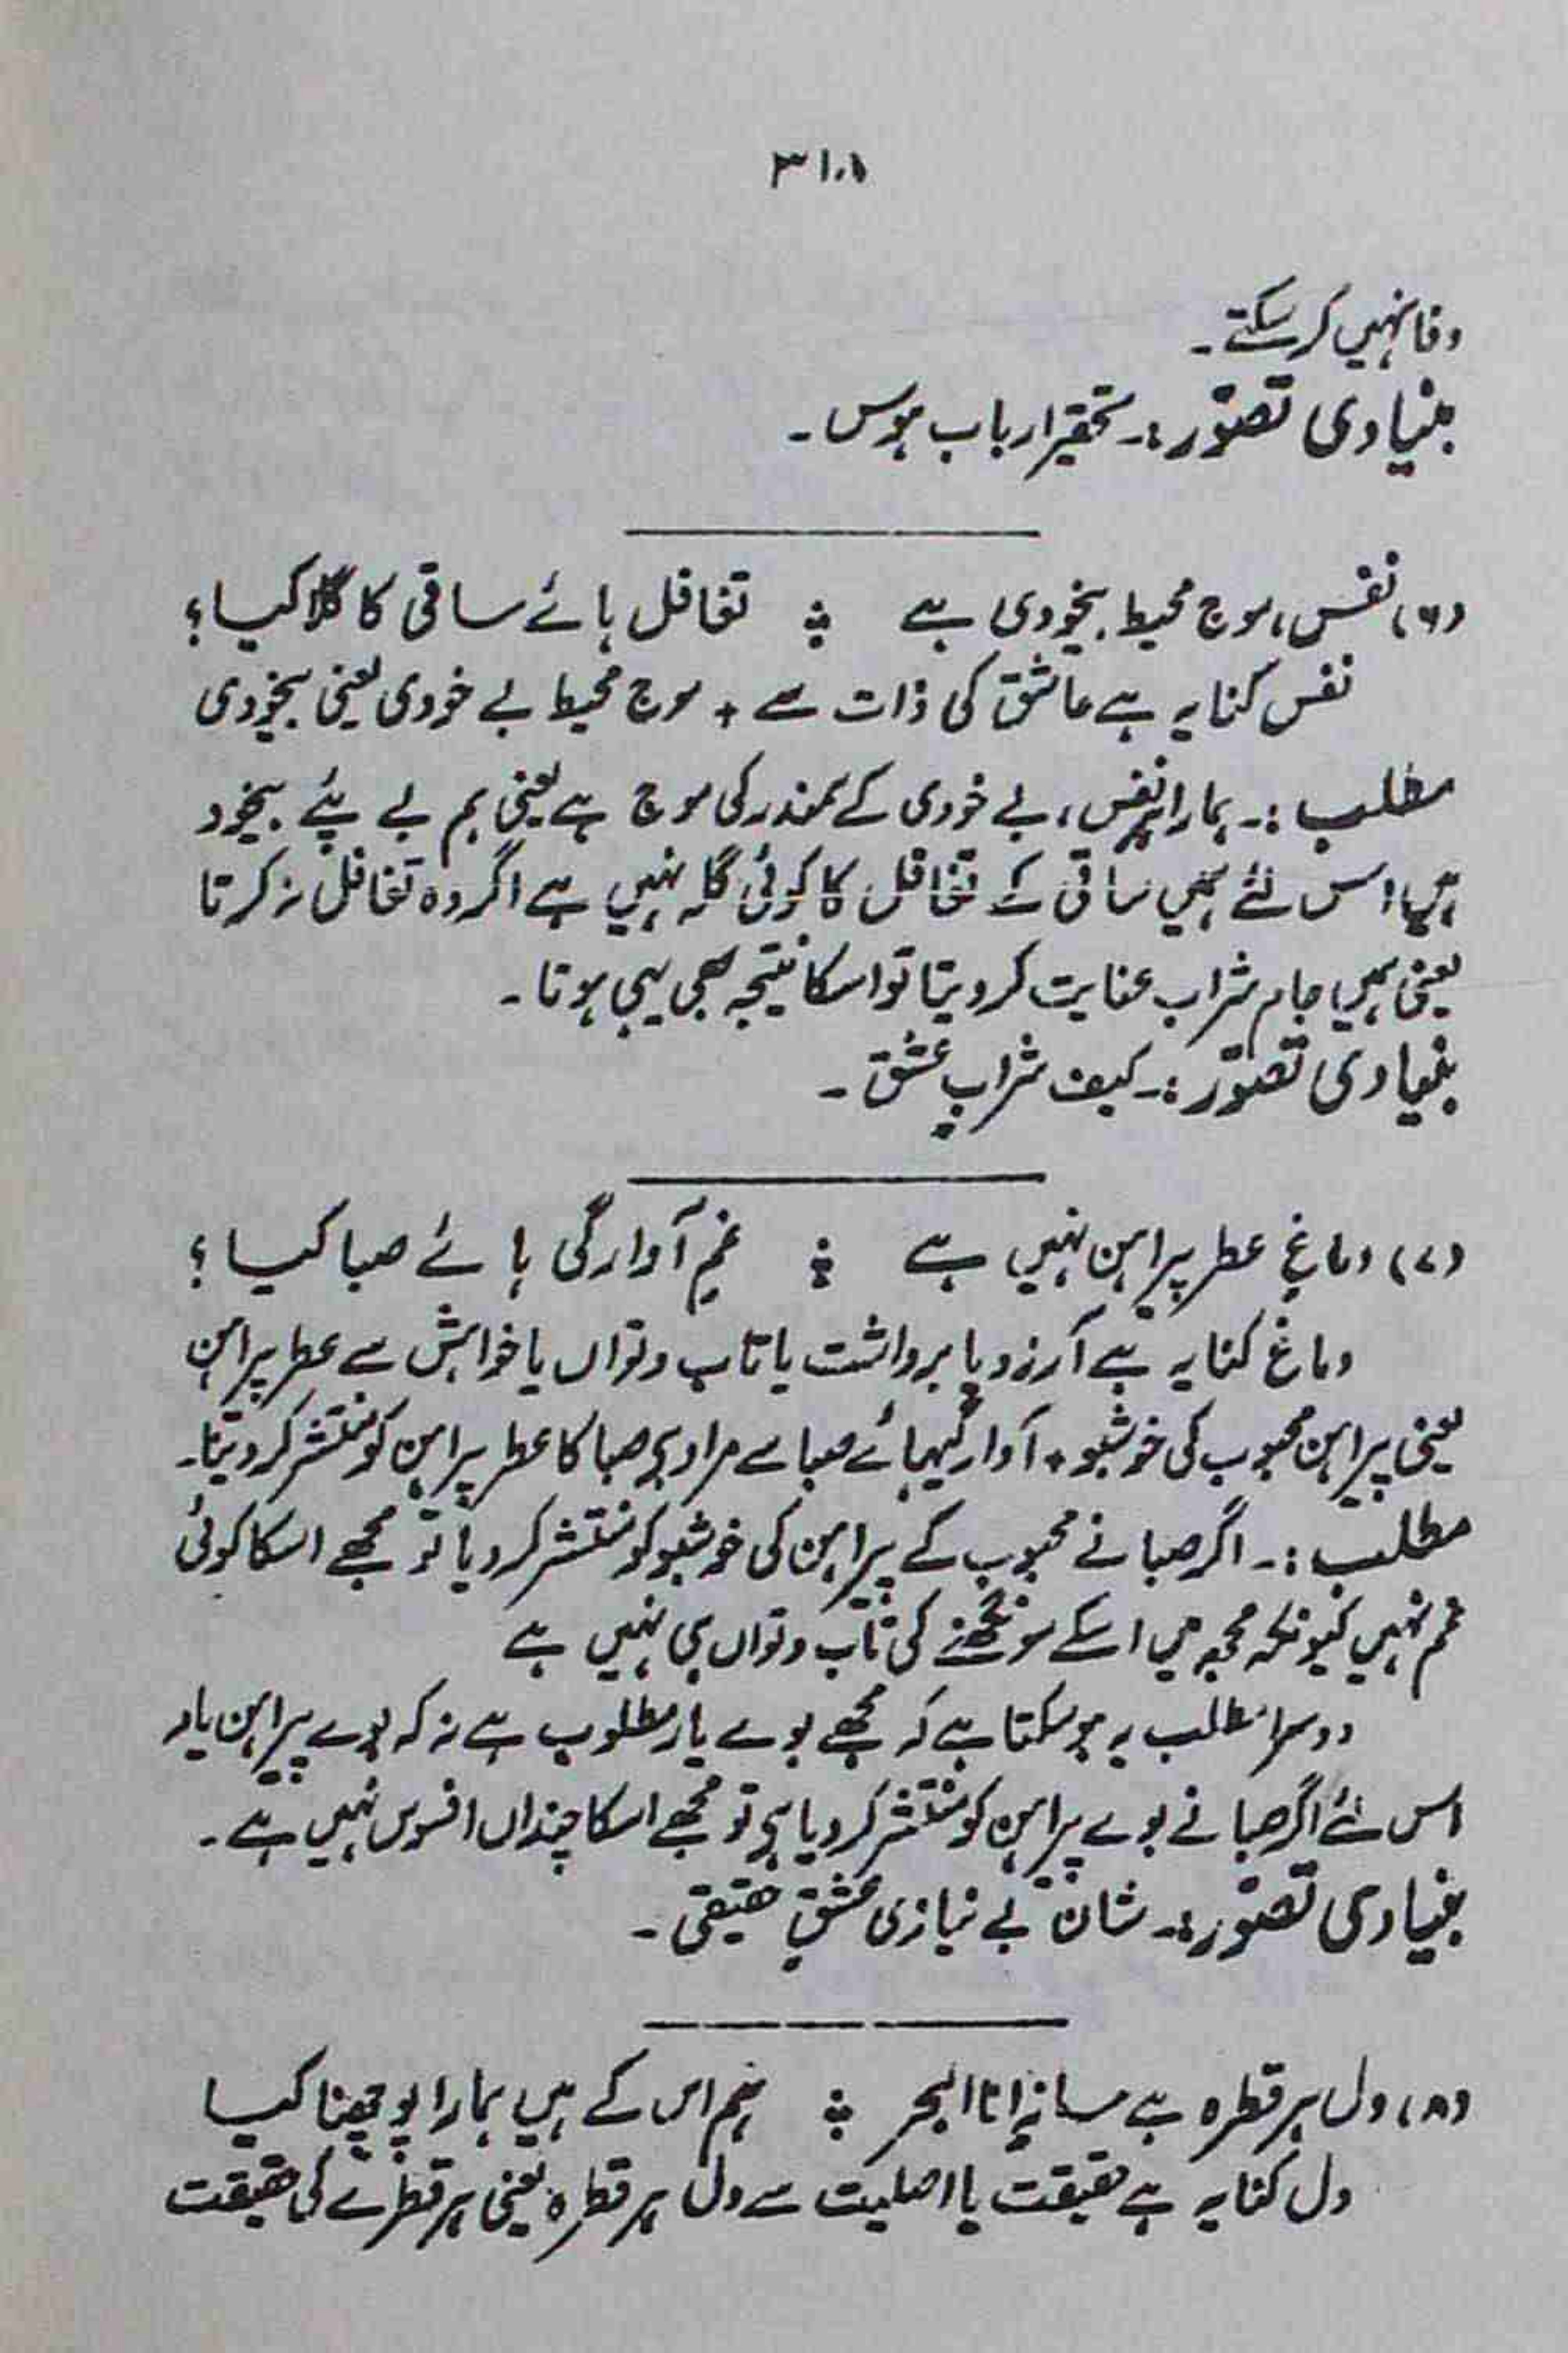 ۳۱۰۱
وفا نہیں کر سکتے۔
بنیادی تصوّر :۔ تحقیر ارباب ہوس۔
(۶) نفس، موج محیط بیخودی ہے ؞ تغافل ہائے ساقی کا گلا کیا؟
نفس کنایہ ہے عاشق کی ذات سے + موج محیط بے خودی یعنی بیخودی
مطلب :۔ ہمارا نفس، بے خودی کے سمندر کی موج ہے یعنی ہم بے پئے بیخود
ہیں اس لئے ہمیں ساقی کے تغافل کا کوئی گلہ نہیں ہے اگر وہ تغافل نہ کرتا
یعنی ہمیں جام شراب عنایت کر دیتا تو اسکا نتیجہ بھی یہی ہوتا۔
بنیادی تصوّر :۔ کیف شرابِ عشق۔
(۷) دماغِ عطر پیراہن نہیں ہے ؞ غمِ آوارگی ہائے صبا کیا؟
دماغ کنایہ ہے آرزو یا برداشت یا تاب و تواں یا خواہش سے عطر پیراہن
یعنی پیراہن محبوب کی خوشبو + آوارگیہائے صبا سے مراد ہے صبا کا عطر پیراہن کو منتشر کر دینا۔
مطلب :۔ اگر صبا نے محبوب کے پیراہن کی خوشبو کو منتشر کر دیا تو مجھے اسکا کوئی
غم نہیں کیونکہ مجھ میں اسکے سونگھنے کی تاب و تواں ہی نہیں ہے
دوسرا مطلب یہ ہو سکتا ہے کہ مجھے بوے یار مطلوب ہے نہ کہ بوے پیراہن یار
اس لئے اگر صبا نے بوے پیراہن کو منتشر کر دیا ہے تو مجھے اسکا چنداں افسوس نہیں ہے۔
بنیادی تصوّر :۔ شان بے نیازی عشقِ حقیقی۔
(۸) دل ہر قطرہ ہے سازِ انا البحر ؞ ہم اس کے ہیں ہمارا پوچھنا کیا
دل کنایہ ہے حقیقت یا اصلیت سے دل ہر قطرہ یعنی ہر قطرے کی حقیقت